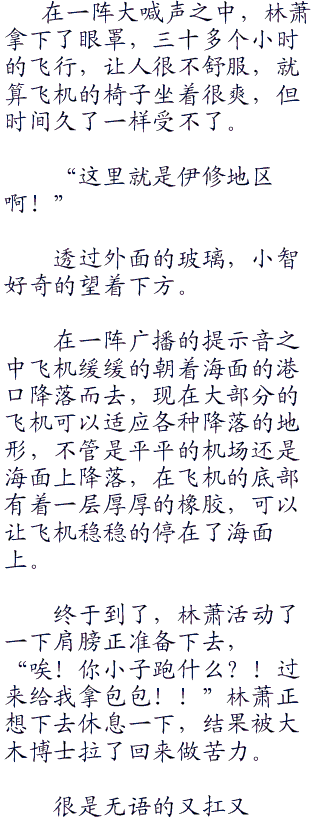 在一阵大喊声之中，林萧
拿下了眼罩，三十多个小时
的飞行，让人很不舒服，就
算飞机的椅子坐着很爽，但
时间久了一样受不了。
“这里就是伊修地区
啊！”
透过外面的玻璃，小智
好奇的望着下方。
在一阵广播的提示音之
中飞机缓缓的朝着海面的港
口降落而去，现在大部分的
飞机可以适应各种降落的地
形，不管是平平的机场还是
海面上降落，在飞机的底部
有着一层厚厚的橡胶，可以
让飞机稳稳的停在了海面
上。
终于到了，林萧活动了
一下肩膀正准备下去，
“唉！你小子跑什么？！过
来给我拿包包！！”林萧正
想下去休息一下，结果被大
木博士拉了回来做苦力。
很是无语的又扛又